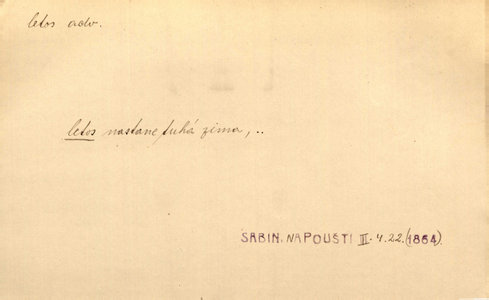 letos adv.
letos nastane tuhá zima, ..
SABIN, NA POUŠTI III. 4. 22. (1864).